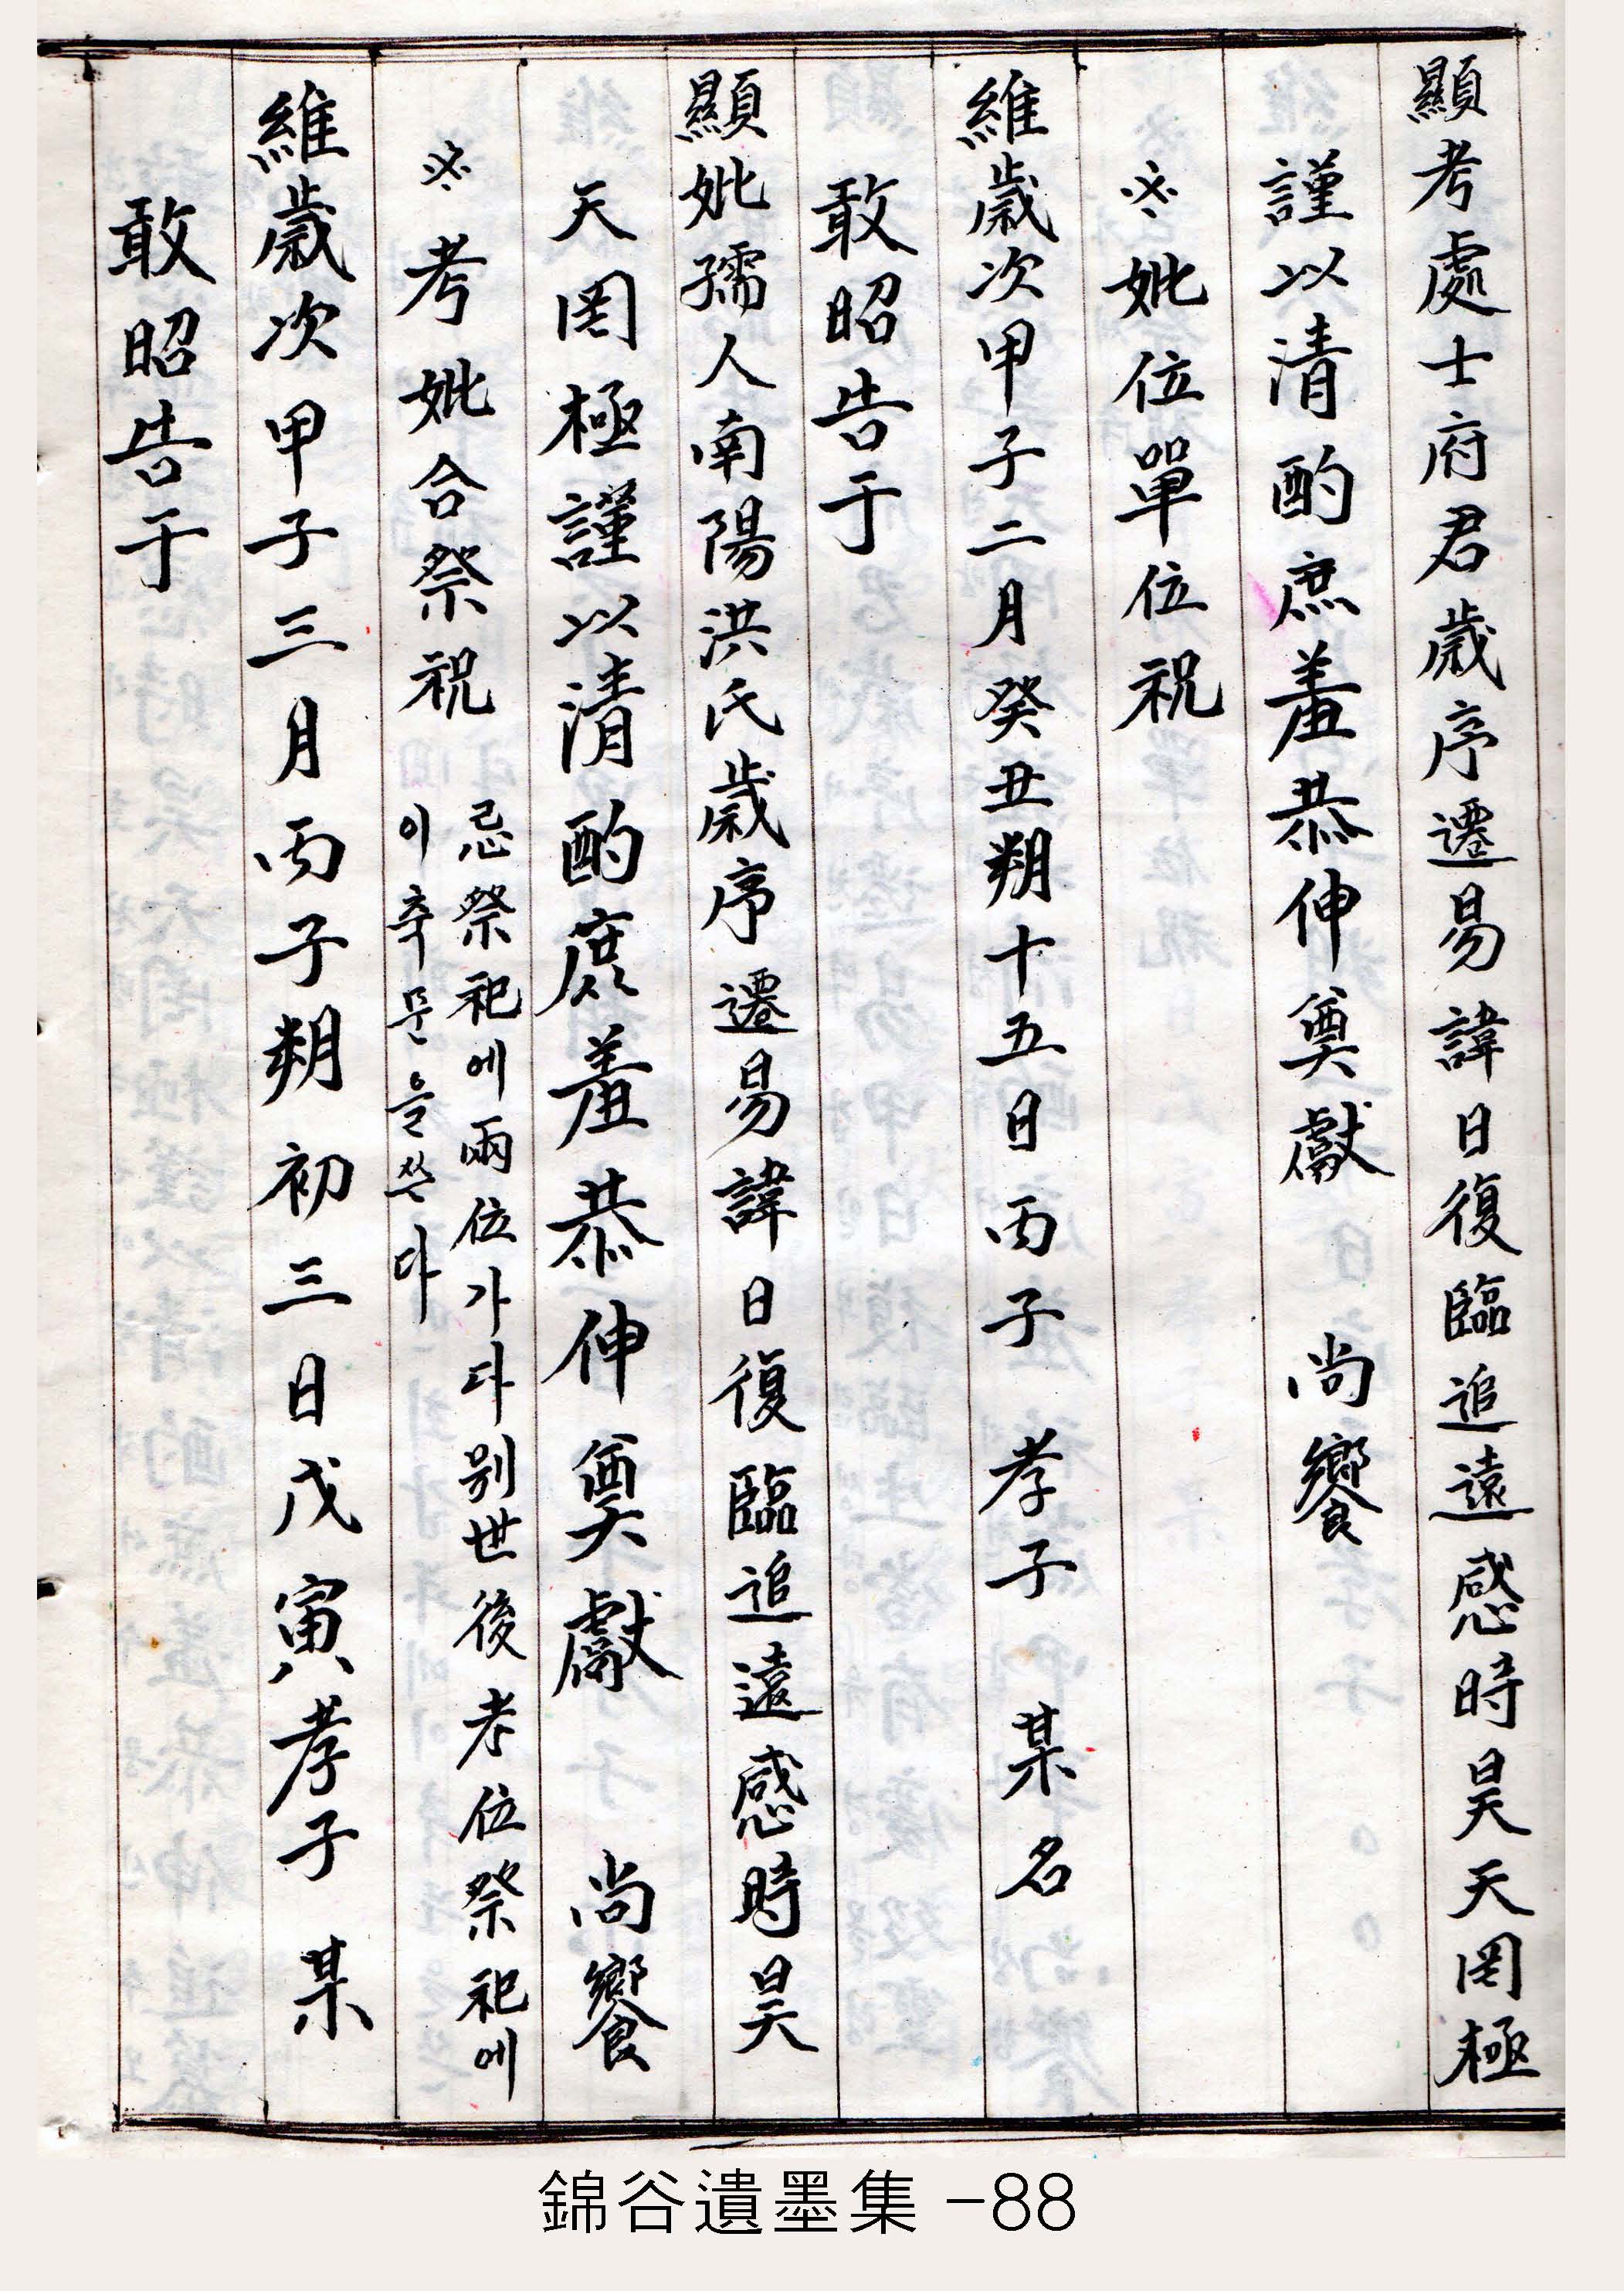 顯考處士府君歲序遷易諱日復臨追遠感時昊天罔極
謹以清酌庶羞恭伸奠獻 尚饗
※妣位單位祝
維歲次甲子二月癸丑朔十五日丙子 孝子 某名
敢昭告于
顯妣孺人南陽洪氏歲序遷易諱日復臨追遠感時昊
天罔極謹以清酌庶羞恭伸奠獻 尚饗
※考妣合祭祝
忌祭祀에兩位가다別世後考位祭祀에
이축문을쓴다
維歲次甲子三月丙子朔初三日戊寅孝子 某
敢昭告于
錦谷遺墨集 -88